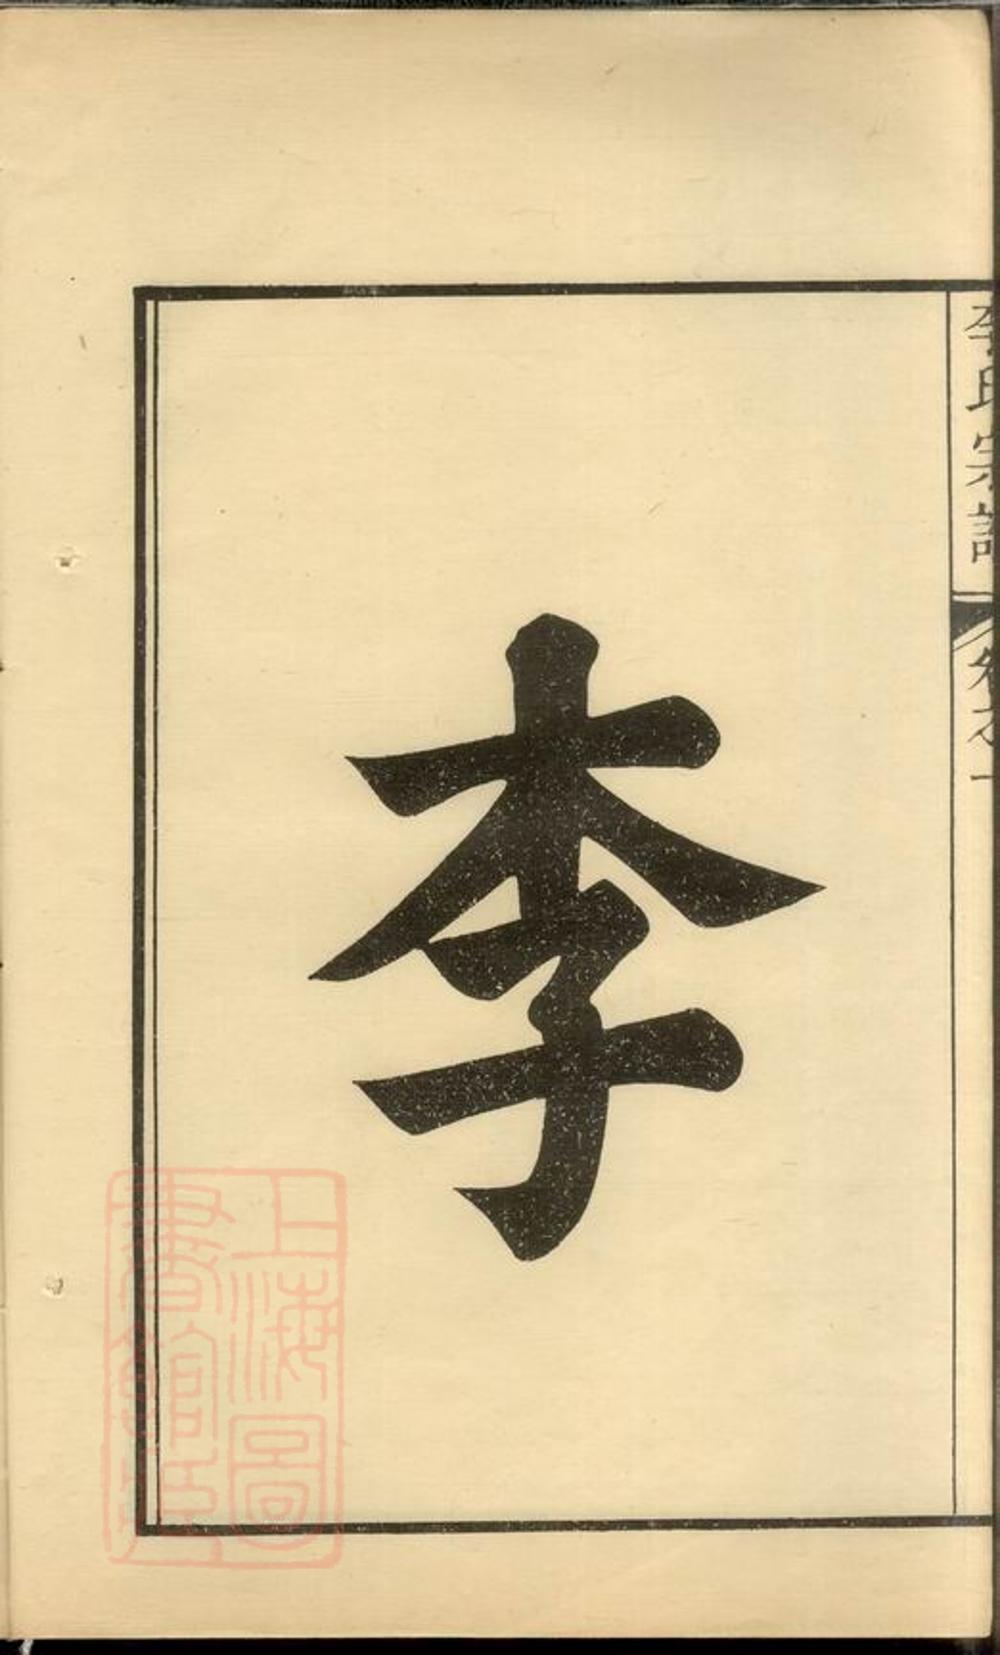 李氏宗譜 卷之一
李
上海圖
書館藏